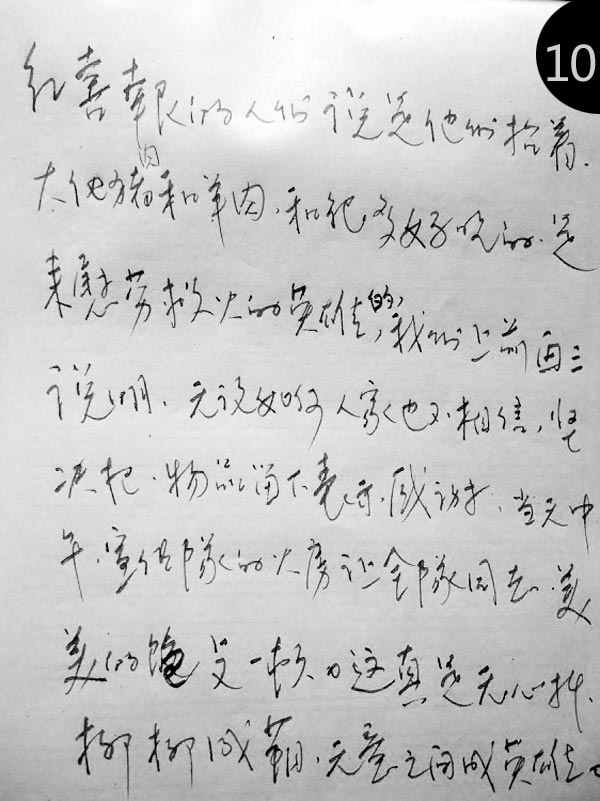 10
红喜报的人们说是他们抬着
大他猪肉和羊肉、和很多好吃的、是
来慰劳救火的英雄的,我们上前再三
说明、无论如何人家也不相信,坚
决把、物品留下表示、感谢、当天中
午、宣传队的火房让全队同志、美
美的饱食一顿、这真是无心插、
柳柳成荫、无意之间成英雄。